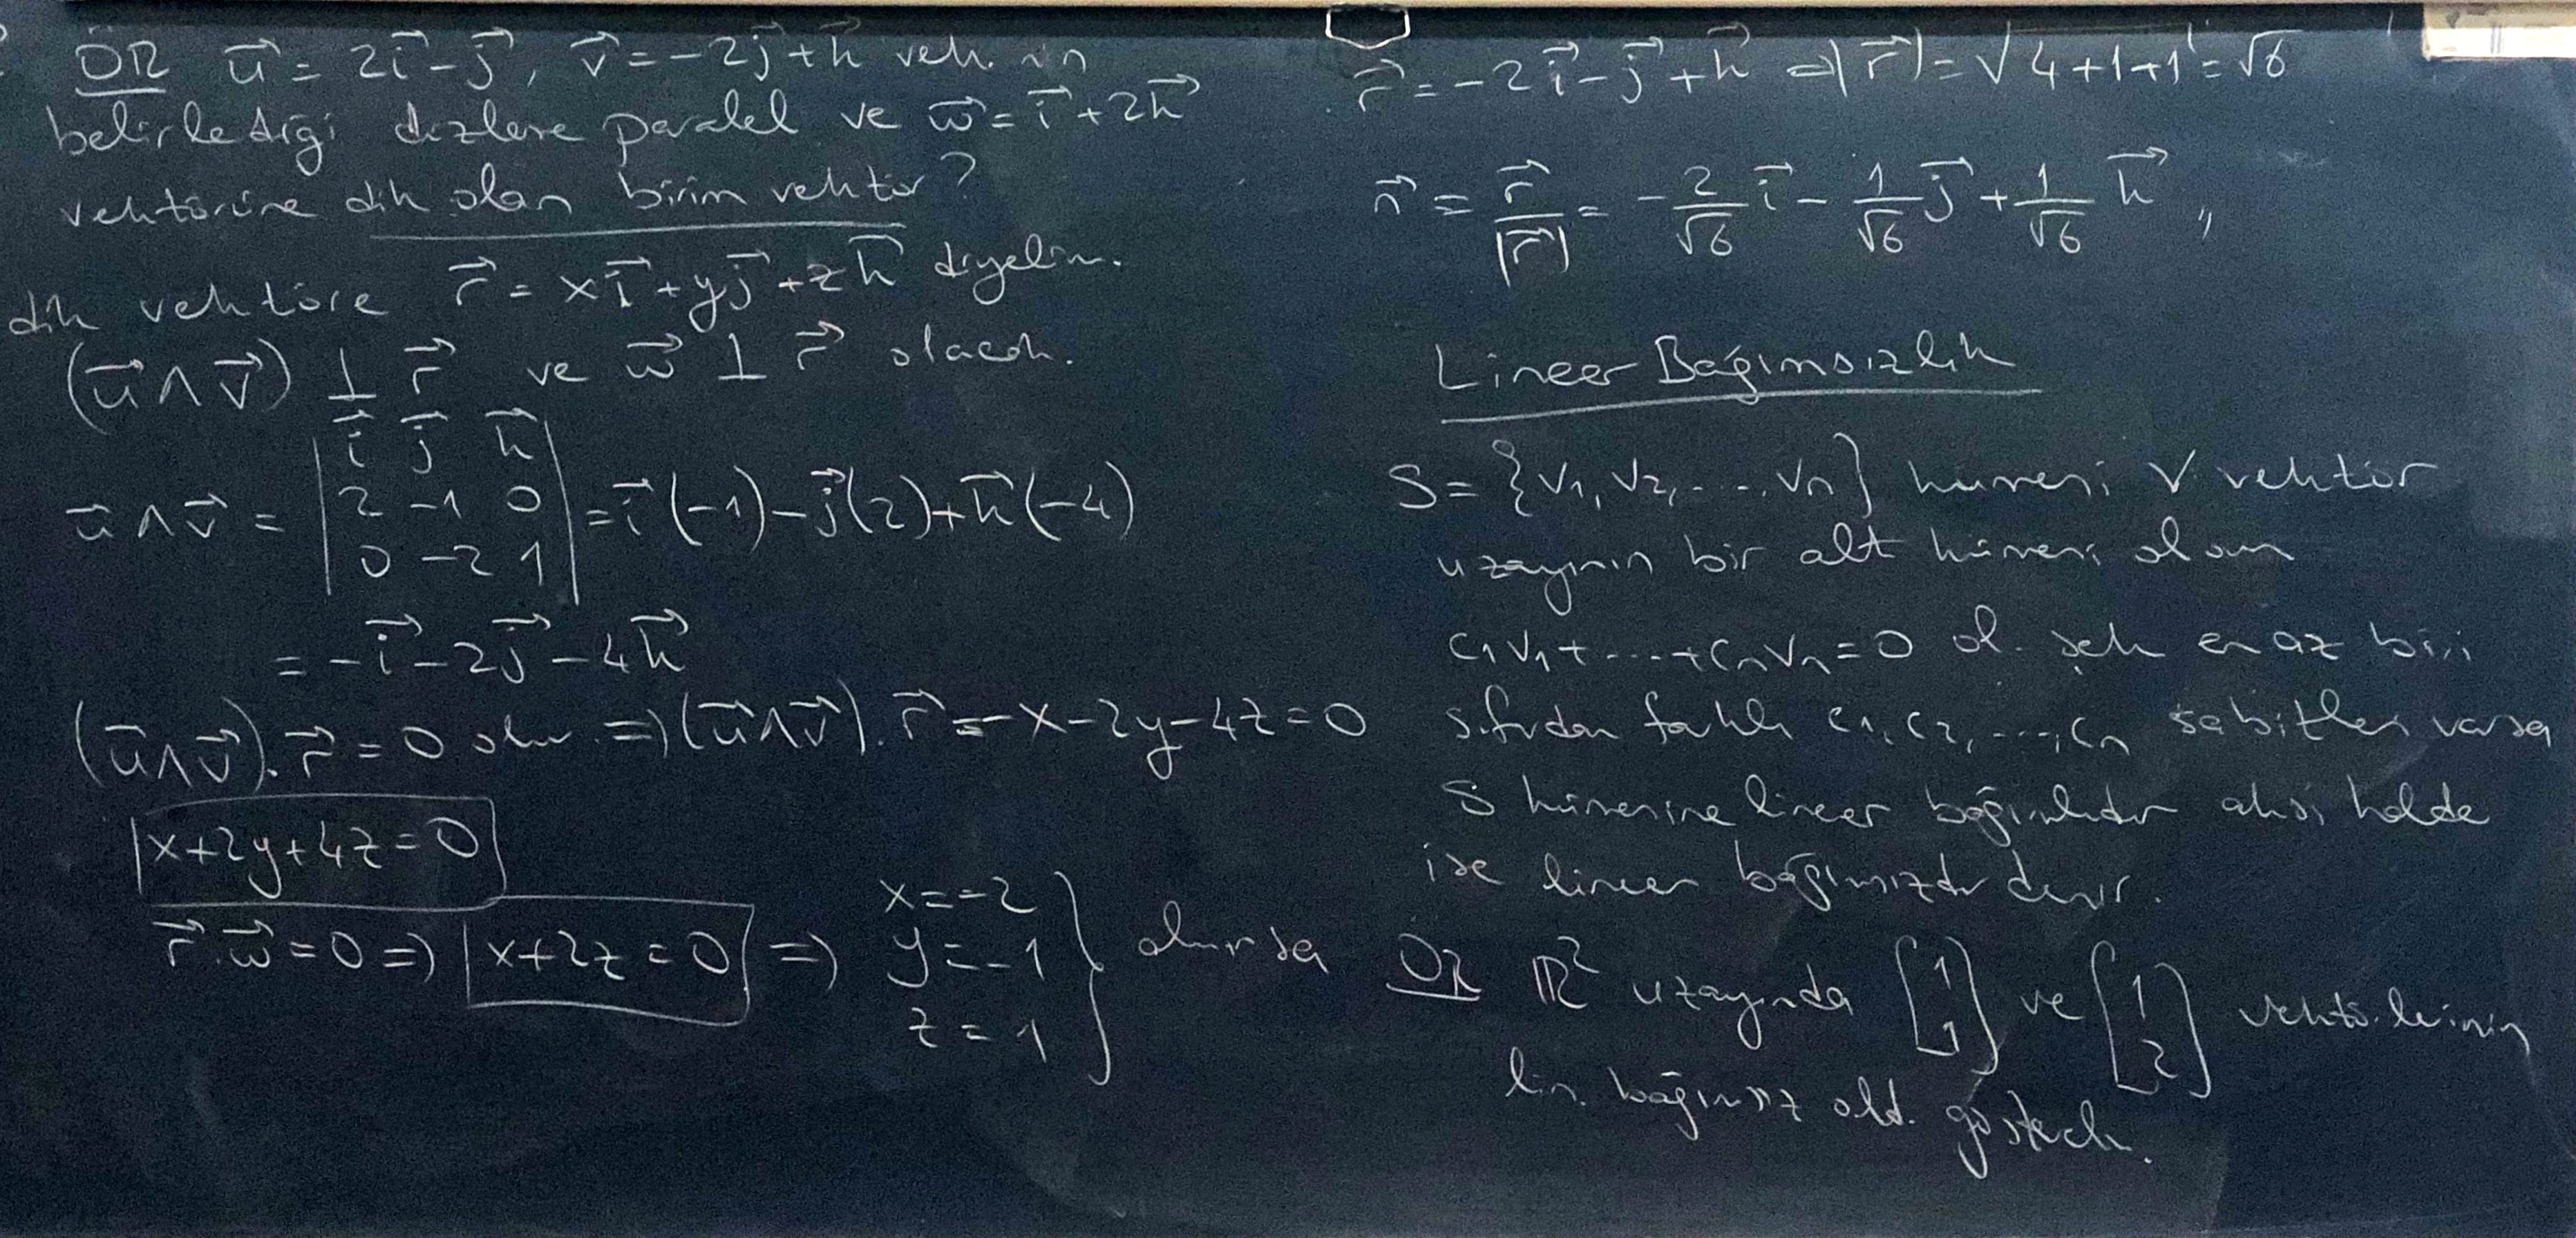 ÖR u⃗ = 2i⃗ - j⃗, v⃗ = -2j⃗ + k⃗ vek. in
belirlediği düzleme paralel ve w⃗ = i⃗ + 2k⃗
vektörüne dik olan birim vektör?
dik vektöre r⃗ = xi⃗ + yj⃗ + zk⃗ diyelim.
(u⃗ ∧ v⃗) ⊥ r⃗ ve w⃗ ⊥ r⃗ olacak.
u⃗ ∧ v⃗ = | i⃗ j⃗ k⃗ ; 2 -1 0 ; 0 -2 1 | = i⃗(-1) - j⃗(2) + k⃗(-4)
= -i⃗ - 2j⃗ - 4k⃗
(u⃗ ∧ v⃗) . r⃗ = 0 olur. => (u⃗ ∧ v⃗) . r⃗ = -x - 2y - 4z = 0
x + 2y + 4z = 0
r⃗ . w⃗ = 0 => x + 2z = 0 => x = -2
y = -1
z = 1 } alınırsa
r⃗ = -2i⃗ - j⃗ + k⃗ => |r⃗| = √4+1+1 = √6
n⃗ = r⃗/|r⃗| = -2/√6 i⃗ - 1/√6 j⃗ + 1/√6 k⃗ //
Lineer Bağımsızlık
S = {v₁, v₂, ..., vₙ} kümesi V vektör
uzayının bir alt kümesi olsun
c₁v₁ + ... + cₙvₙ = 0 ol. şek en az biri
sıfırdan farklı c₁, c₂, ..., cₙ sabitleri varsa
S kümesine lineer bağımlıdır aksi halde
ise lineer bağımsızdır denir.
ÖR ℝ² uzayında [1 ; 1] ve [1 ; 2] vektörlerinin
lin. bağımsız old. gösterek.